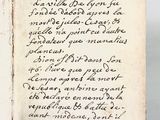 La ville De Lyon fut
fondée d'abord apres la
mort de jules Cesar, et
quelle na point eu d'autre
fondateur que munatius
plancus.
Dion dit dans son
livre que peu de
temps apres la mort
de Cesar, antoine ayant
eté declaré ennemi de la
republique & battu de-
uant modene, dont il